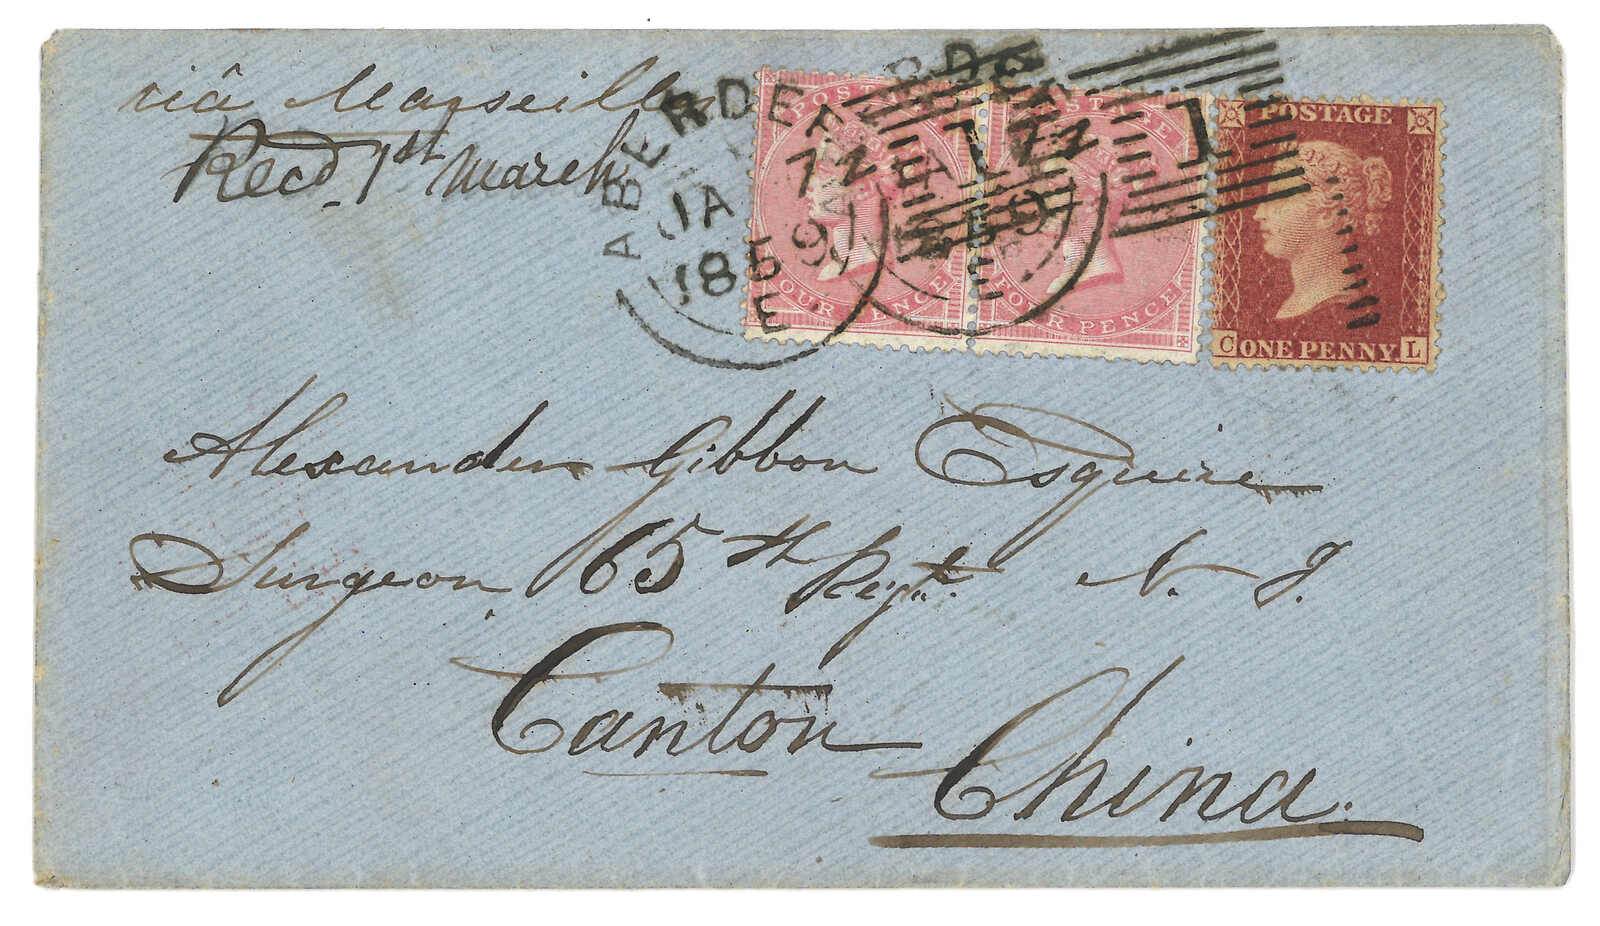 viâ Marseilles
Recd. 1st March
ABERDEEN
JA 7
1859
E
POSTAGE
FOUR PENCE
POSTAGE
FOUR PENCE
1
POSTAGE
C ONE PENNY L
Alexander Gibbon Esquire
Surgeon 65th Regt. N. I.
Canton
China.